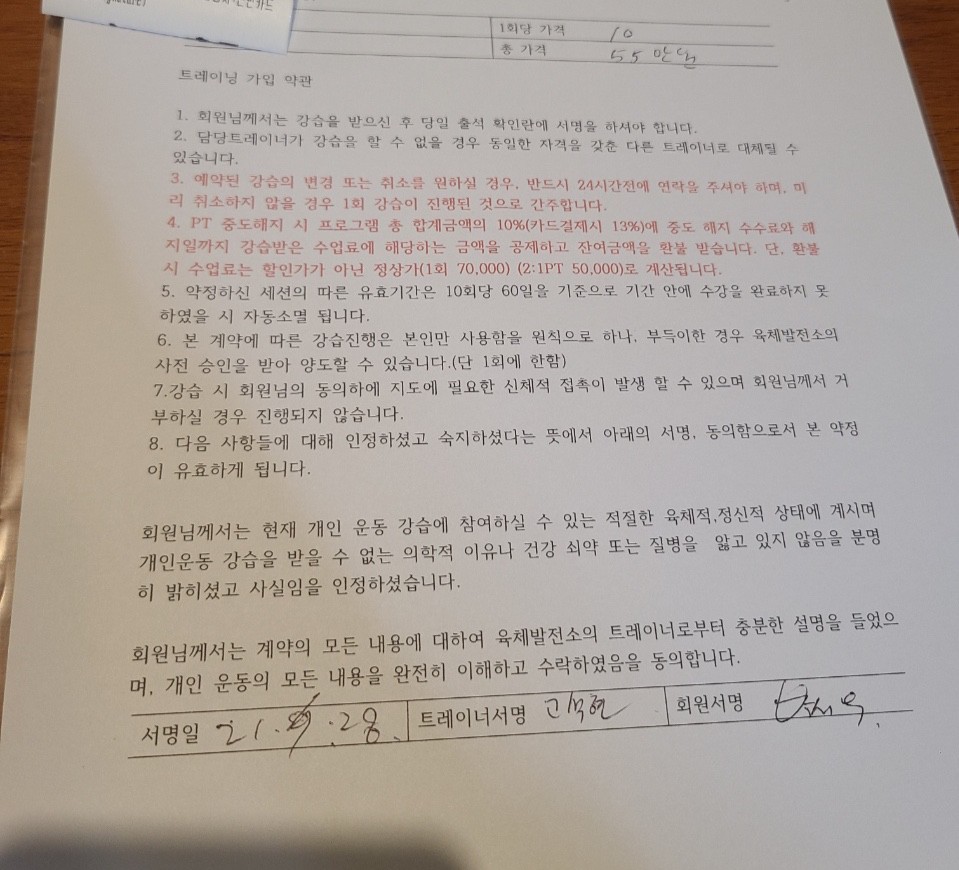 카드
1회당 가격 10
총 가격 55만원
트레이닝 가입 약관
1. 회원님께서는 강습을 받으신 후 당일 출석 확인란에 서명을 하셔야 합니다.
2. 담당트레이너가 강습을 할 수 없을 경우 동일한 자격을 갖춘 다른 트레이너로 대체될 수
있습니다.
3. 예약된 강습의 변경 또는 취소를 원하실 경우, 반드시 24시간전에 연락을 주셔야 하며, 미
리 취소하지 않을 경우 1회 강습이 진행된 것으로 간주합니다.
4. PT 중도해지 시 프로그램 총 합계금액의 10%(카드결제시 13%)에 중도 해지 수수료와 해
지일까지 강습받은 수업료에 해당하는 금액을 공제하고 잔여금액을 환불 받습니다. 단, 환불
시 수업료는 할인가가 아닌 정상가(1회 70,000) (2:1PT 50,000)로 계산됩니다.
5. 약정하신 세션의 따른 유효기간은 10회당 60일을 기준으로 기간 안에 수강을 완료하지 못
하였을 시 자동소멸 됩니다.
6. 본 계약에 따른 강습진행은 본인만 사용함을 원칙으로 하나, 부득이한 경우 육체발전소의
사전 승인을 받아 양도할 수 있습니다.(단 1회에 한함)
7.강습 시 회원님의 동의하에 지도에 필요한 신체적 접촉이 발생 할 수 있으며 회원님께서 거
부하실 경우 진행되지 않습니다.
8. 다음 사항들에 대해 인정하셨고 숙지하셨다는 뜻에서 아래의 서명, 동의함으로서 본 약정
이 유효하게 됩니다.
회원님께서는 현재 개인 운동 강습에 참여하실 수 있는 적절한 육체적,정신적 상태에 계시며
개인운동 강습을 받을 수 없는 의학적 이유나 건강 쇠약 또는 질병을 앓고 있지 않음을 분명
히 밝히셨고 사실임을 인정하셨습니다.
회원님께서는 계약의 모든 내용에 대하여 육체발전소의 트레이너로부터 충분한 설명을 들었으
며, 개인 운동의 모든 내용을 완전히 이해하고 수락하였음을 동의합니다.
서명일 21. .28. 트레이너서명 고석현 회원서명